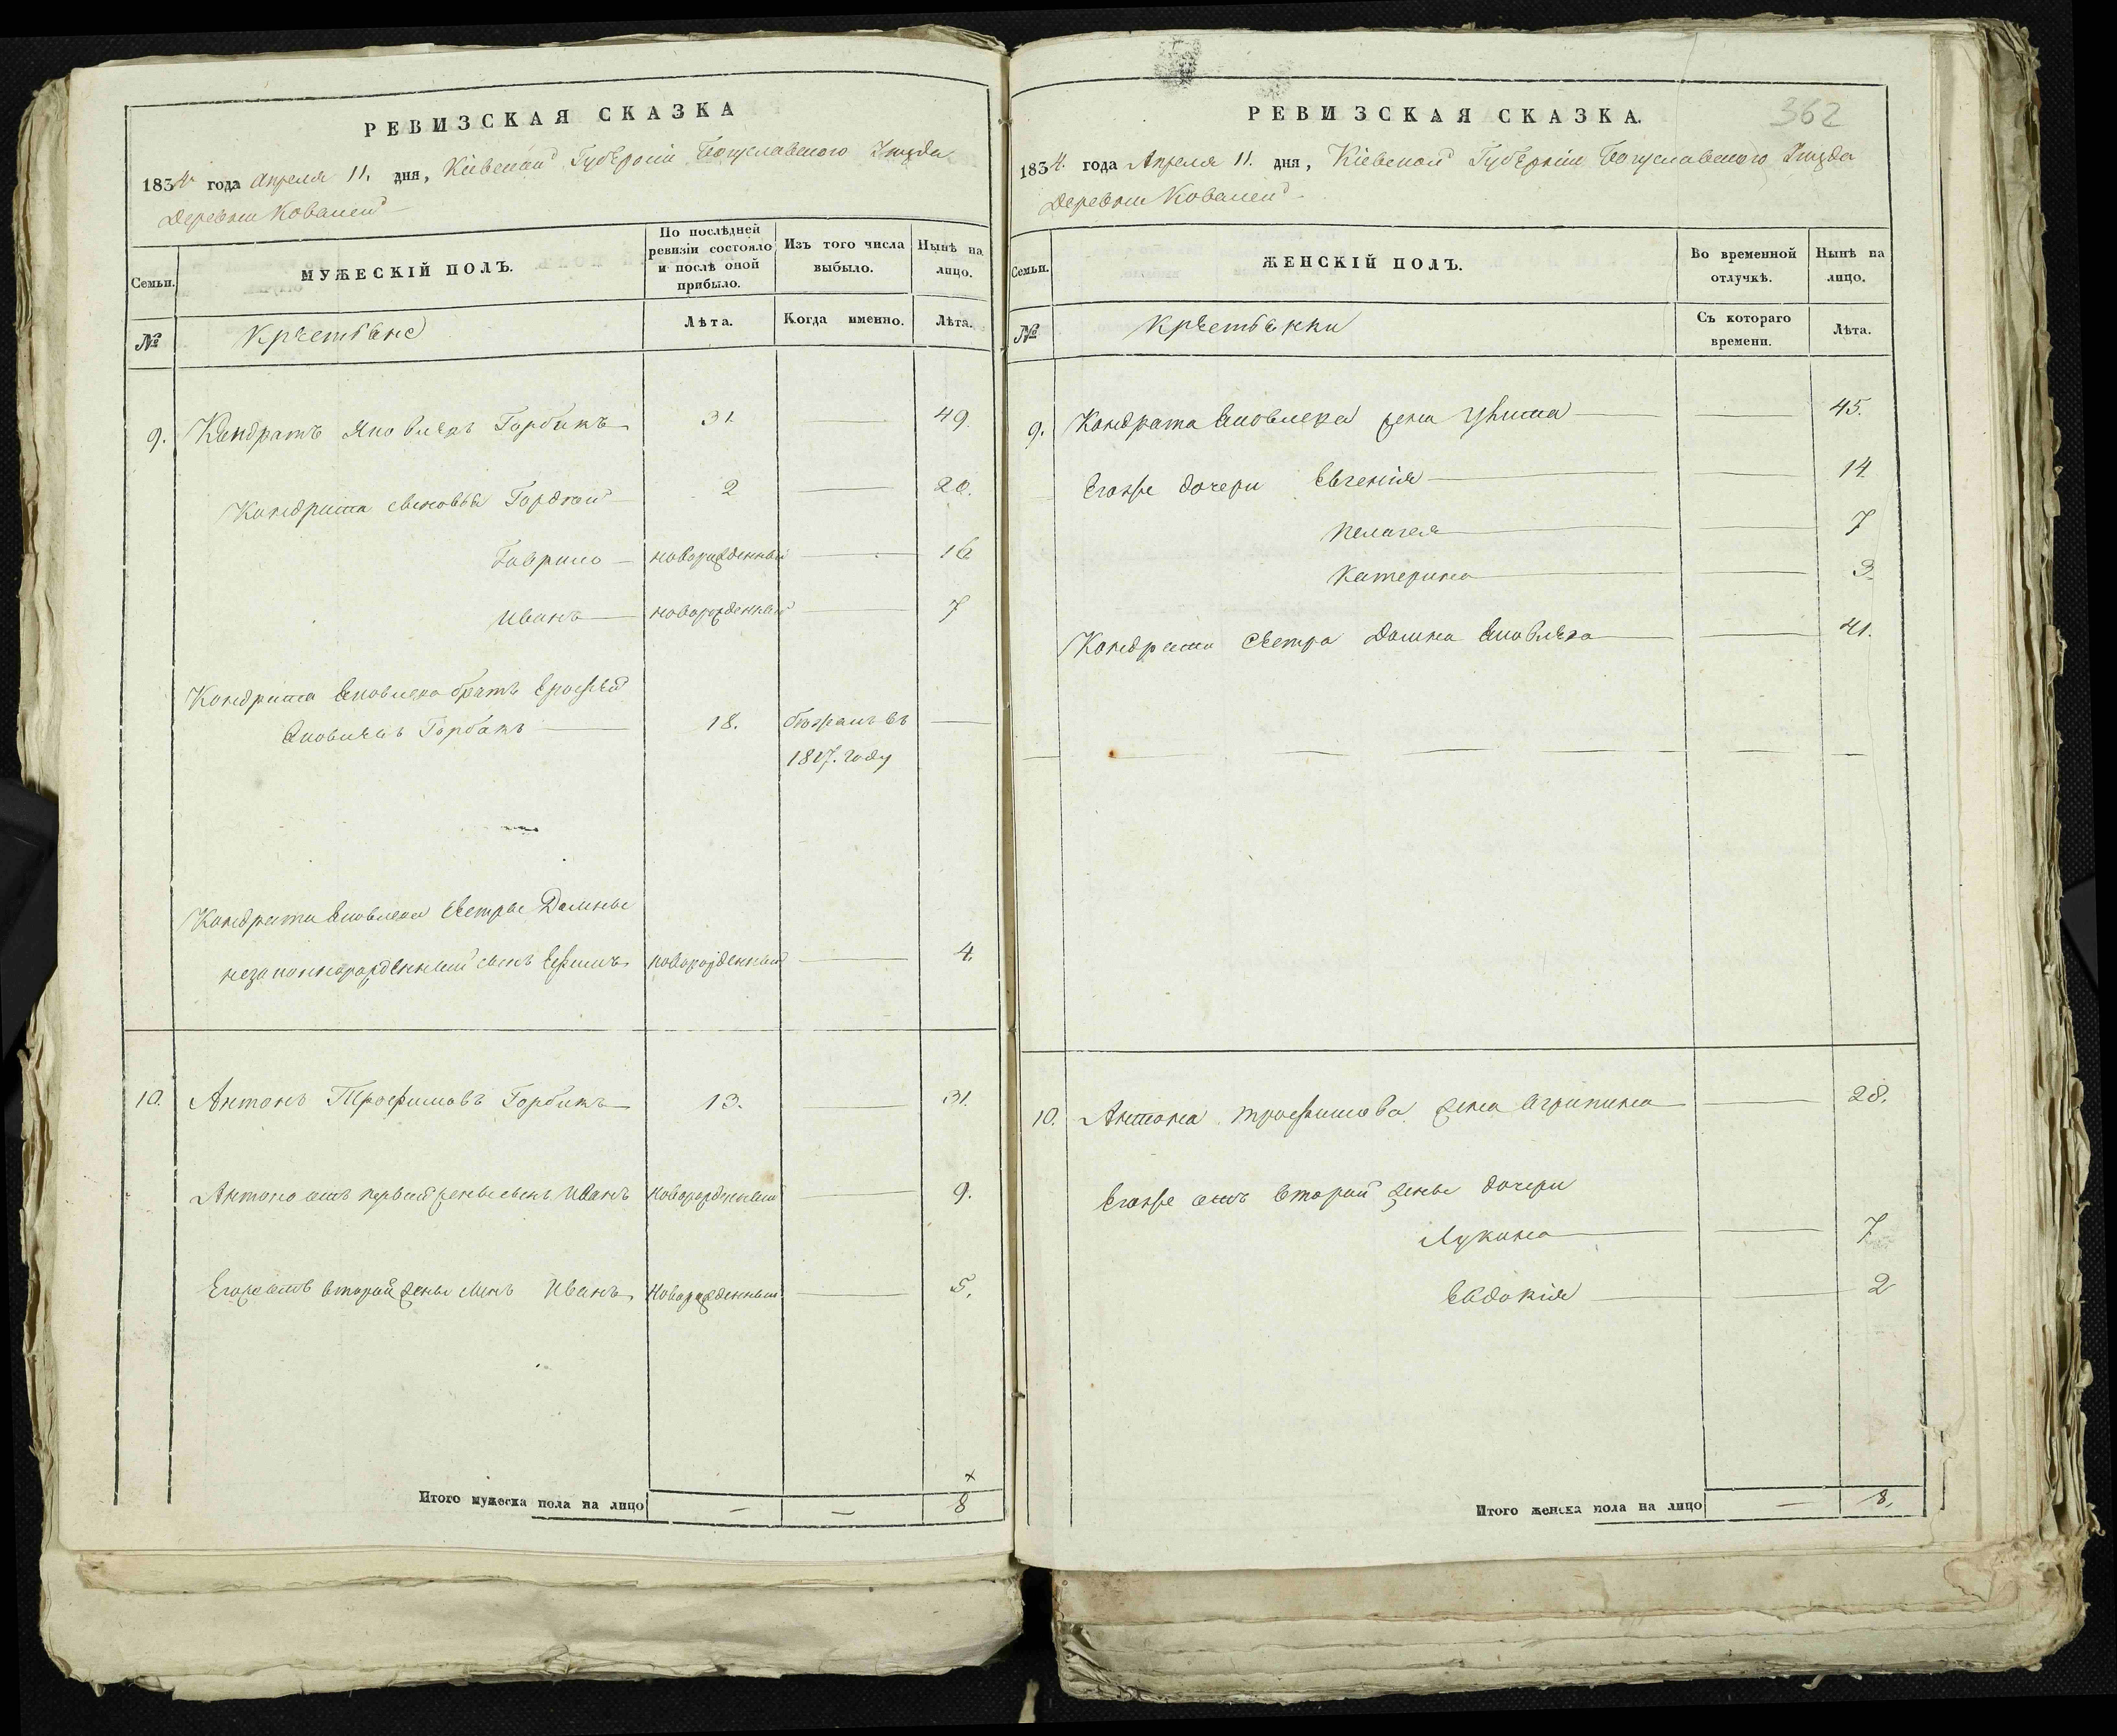 РЕВИЗСКАЯ СКАЗКА
1834 года Апреля 11. дня, Кіевской Губерніи Богуславского Уезда
Деревни Ковалей
Семьи.
МУЖЕСКІЙ ПОЛЪ.
По послѣдней ревизіи состояло и послѣ оной прибыло.
Изъ того числа выбыло.
Нынѣ на лицо.
№
Крестьяне
Лѣта.
Когда именно.
Лѣта.
9. Кондратъ Яковлевъ Горбикъ 31. — 49.
Кондрата сыновья Гордѣй 2 — 20.
Гаврило новорожденный — 16
Иванъ новорожденный — 7
Кондрата Яковлева братъ Ерофѣй
Яковлевъ Горбикъ 18. бѣжалъ въ —
1817. году
Кондрата Яковлева сестры Домны
незаконнорожденный сынъ Ефимъ новорожденный — 4.
10. Антонъ Трофимовъ Горбикъ 13. — 31.
Антона отъ первой жены сынъ Иванъ новорожденный — 9.
Егожъ отъ второй жены сынъ Иванъ Новорожденный — 5.
Итого мужеска пола на лицо — — 8
РЕВИЗСКАЯ СКАЗКА.
362
1834. года Апреля 11. дня, Кіевской Губерніи Богуславского Уезда
Деревни Ковалей
Семьи.
ЖЕНСКІЙ ПОЛЪ.
Во временной отлучкѣ.
Нынѣ на лицо.
№
Крестьянки
Съ котораго времени.
Лѣта.
9. Кондрата Яковлева жена — 45.
Егоже дочери Евгенія — 14
Пелагея — 7
Катерина — 3.
Кондрата сестра Домна Яковлева — 41.
10. Антона Трофимова жена Агрипина — 28.
Егоже отъ второй жены дочери
Лукина — 7
Евдокія — 2
Итого женска пола на лицо — 8.